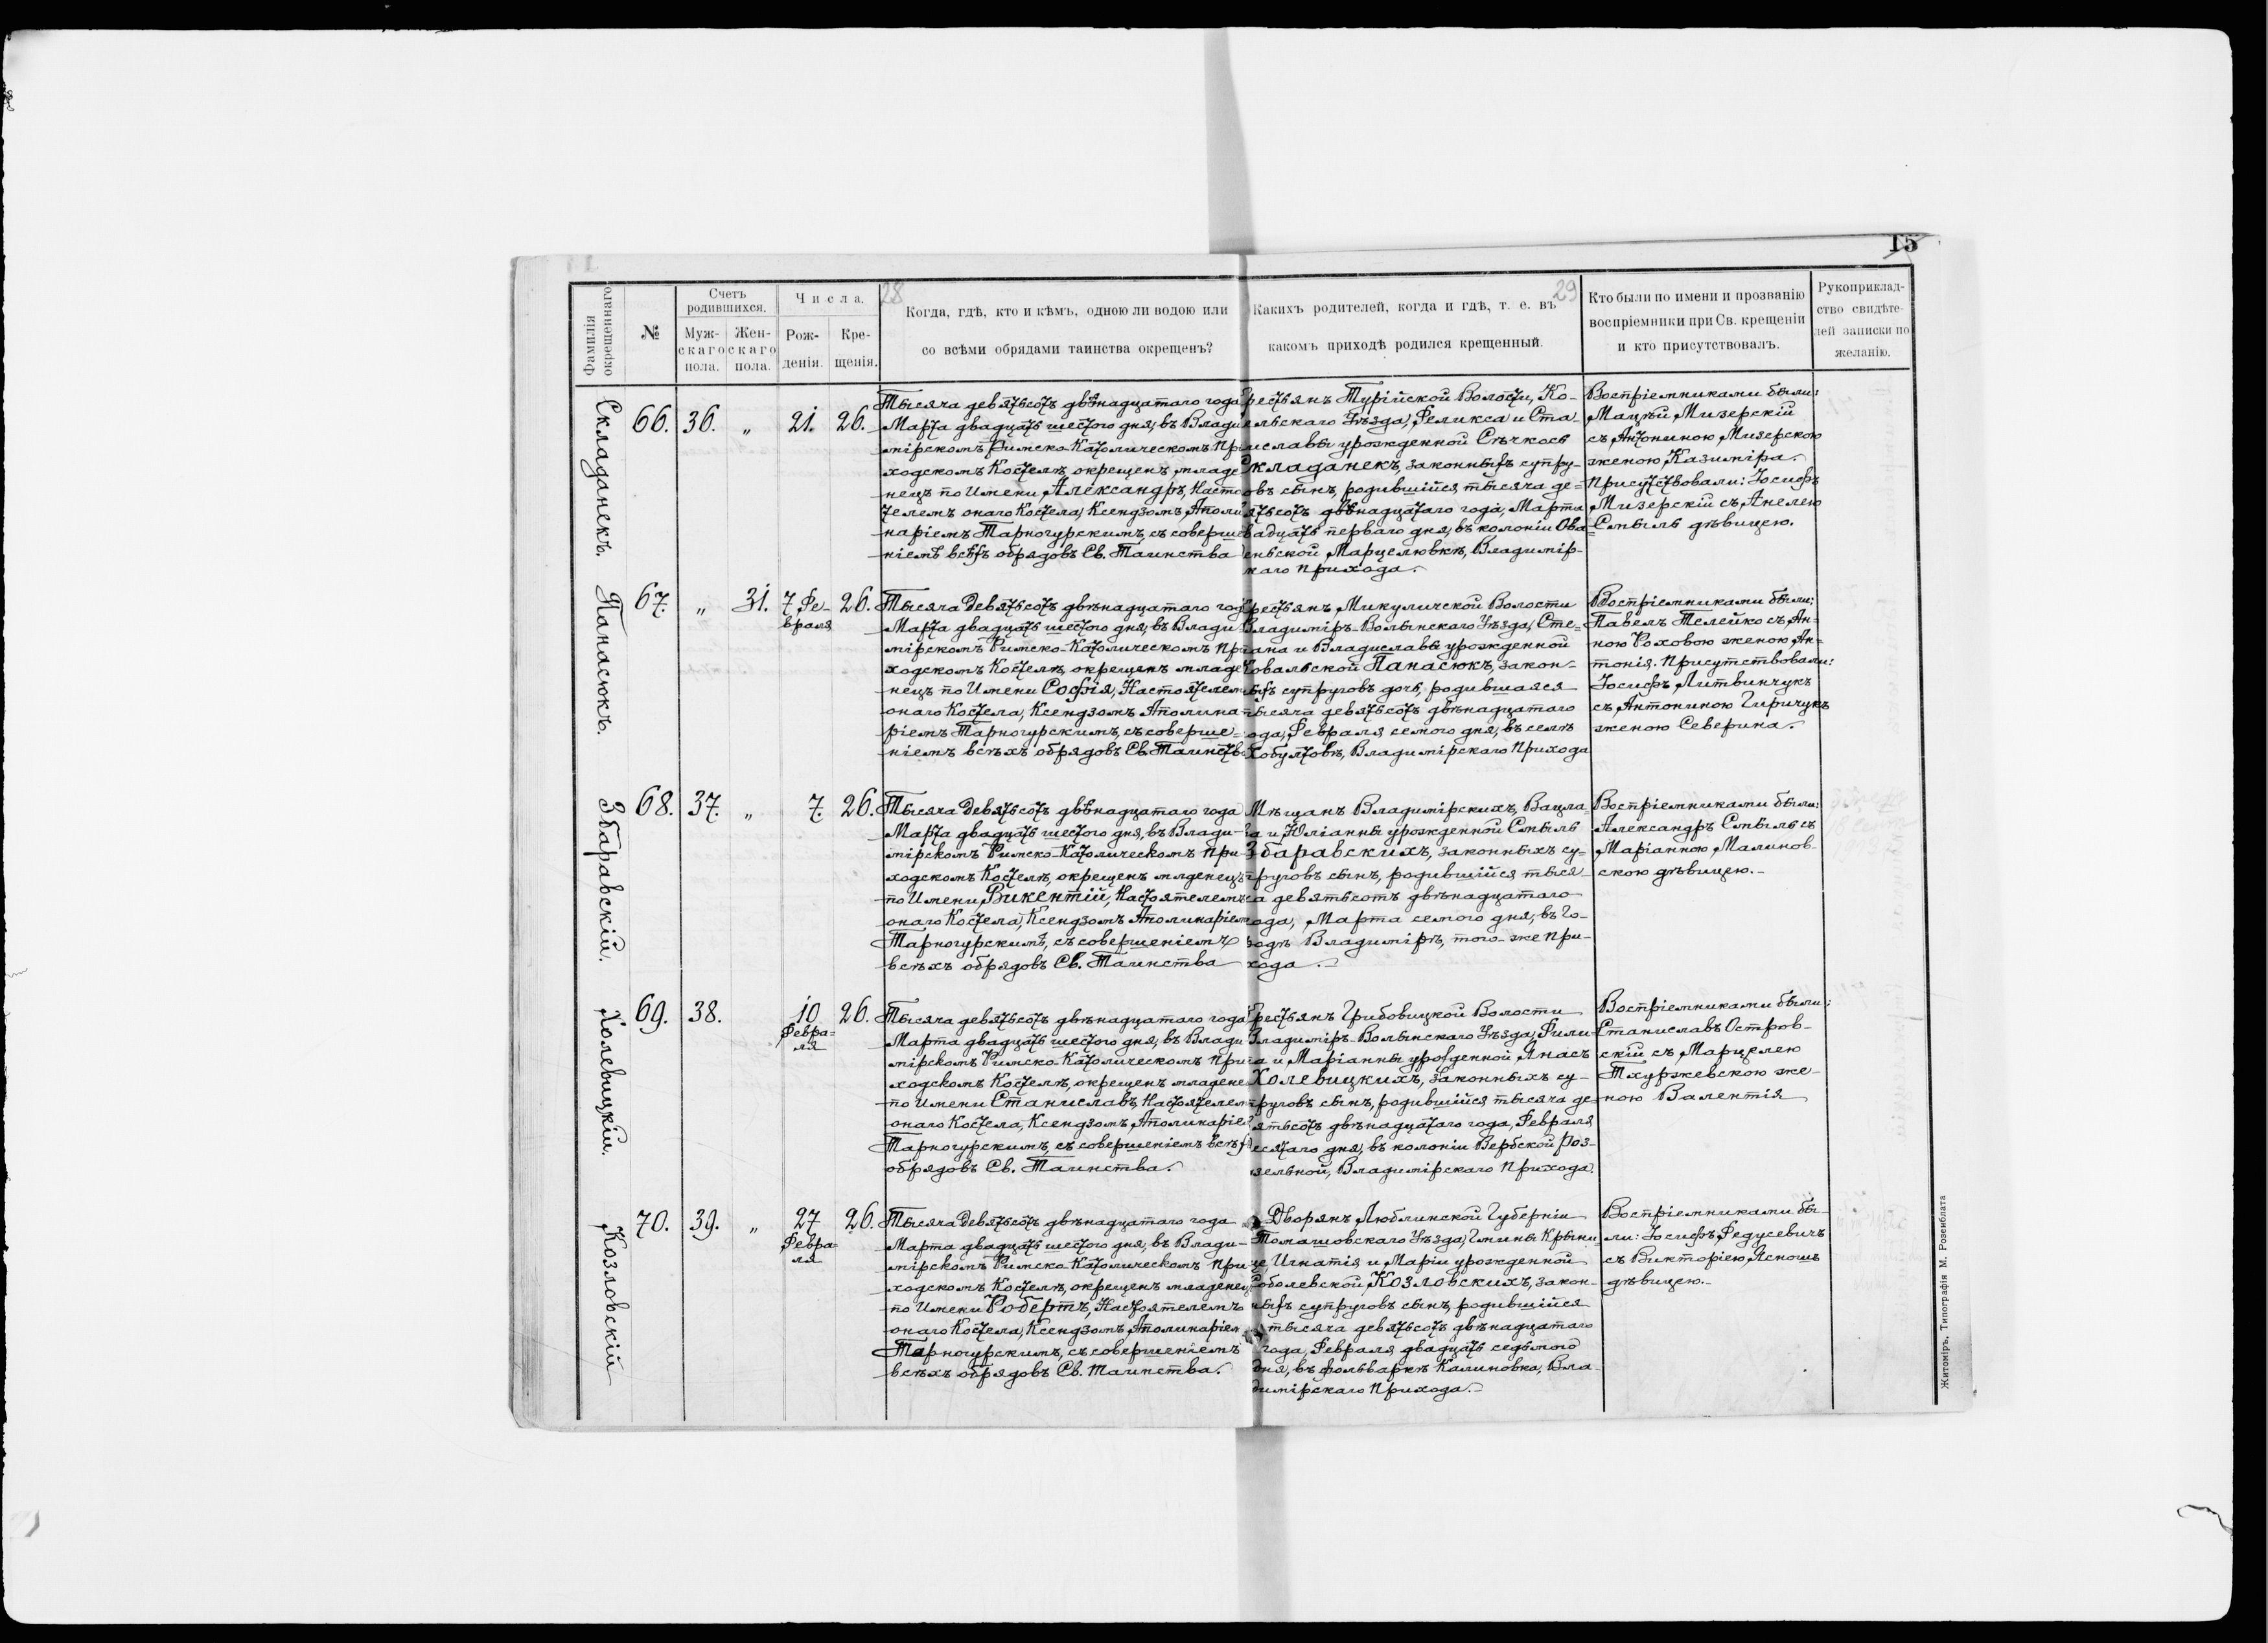 15
28
29
Фамилія окрещеннаго
№
Счетъ родившихся.
Мужскаго пола.
Женскаго пола.
Числа.
Рожденія.
Крещенія.
Когда, гдѣ, кто и кѣмъ, одною ли водою или
со всѣми обрядами таинства окрещенъ?
Какихъ родителей, когда и гдѣ, т. е. въ
какомъ приходѣ родился крещенный.
Кто были по имени и прозванію
воспріемники при Св. крещеніи
и кто присутствовалъ.
Рукоприклад-
ство свидѣте-
лей записки по
желанію.
Складанекъ.
66. 36. „ 21. 26.
Тысяча девятьсотъ двѣнадцатаго года
Марта двадцать шестого дня, въ Влади
мірскомъ Римско-Католическомъ При
ходскомъ Костелѣ, окрещенъ младе
нецъ по Имени Александръ, Насто
ятелемъ онаго Костела, Ксендзомъ Аполи
наріемъ Тарногурскимъ, съ соверше
ніемъ всѣхъ обрядовъ Св. Таинства
рестьянъ Турійской Волости, Ко-
ельскаго Уѣзда, Феликса и Ста
иславы урожденной Сѣчкосъ
Складанекъ, законныхъ супру-
овъ сынъ, родившійся тысяча де-
ятьсотъ двѣнадцатаго года, Марта
вадцать перваго дня, въ колоніи Ова
еньской Марцелювкѣ, Владимір-
каго Прихода.
Воспріемниками были:
Мацѣй Мизерскій
съ Антониною Мизерскою
женою Казиміра.
Присутствовали: Іосифъ
Мизерскій съ Анелею
Смыль дѣвицею.
Панасюкъ.
67. „ 31. 7 Фе- 26.
враля
Тысяча Девятьсотъ двѣнадцатаго год
Марта двадцать шестого дня, въ Влади
мірскомъ Римско-Католическомъ При
ходскомъ Костелѣ, окрещенъ младе
нецъ по Имени Софія, Настоятелем
онаго Костела, Ксендзомъ Аполина-
ріемъ Тарногурскимъ, съ соверше-
ніемъ всѣхъ обрядовъ Св. Таинств
рестьянъ Микуличской Волости
Владиміръ-Волынскаго Уѣзда, Сте-
ана и Владиславы урожденной
Ковальской Панасюкъ, закон-
ыхъ супруговъ дочь, родившаяся
тысяча девятьсотъ двѣнадцатаго
ода, Февраля семого дня, въ селѣ
Хобултовѣ, Владимірскаго Прихода
Воспріемниками были:
Павелъ Телейко съ Ан-
ною Роховою женою Ан-
тонія. Присутствовали:
Іосифъ Литвинчукъ
съ Антониною Гиричукъ
женою Северина.
Збаравскій.
68. 37. „ 7. 26.
Тысяча Девятьсотъ двѣнадцатаго года
Марта двадцать шестого дня, въ Влади-
мірскомъ Римско-Католическомъ При-
ходскомъ Костелѣ, окрещенъ млденецъ
по Имени Викентій, Настоятелемъ
онаго Костела, Ксендзомъ Аполинаріем
Тарногурскимъ, съ совершеніемъ
всѣхъ обрядовъ Св. Таинства
Мѣщанъ Владимірскихъ, Вацла-
ва и Юліанны урожденной Смыль
Збаравскихъ, законныхъ су-
пруговъ сынъ, родившійся тыся
ча девятьсотъ двѣнадцатаго
ода, Марта семого дня, въ Го-
родѣ Владимірѣ, того-же При-
хода.
Воспріемниками были:
Александръ Смыль съ
Маріанною Малинов-
скою дѣвицею.
Холевицкій.
69. 38. 10 26.
Февра-
ля
Тысяча девятьсотъ двѣнадцатаго года
Марта двадцать шестого дня, въ Влади
мірскомъ Римско-Католическомъ При
ходскомъ Костелѣ, окрещенъ младене
по Имени Станиславъ, Настоятелем
онаго Костела, Ксендзомъ Аполинаріе
Тарногурскимъ, съ совершеніемъ всѣх
обрядовъ Св. Таинства.
рестьянъ Грибовицкой Волости
Владиміръ-Волынскаго Уѣзда, Фили-
а и Маріанны урожденной Янасъ
Холевицкихъ, законныхъ су-
пруговъ сынъ, родившійся тысяча де-
ятьсотъ двѣнадцатаго года, Февраля
есятаго дня, въ колоніи Вербской Роз-
ельной, Владимірскаго Прихода.
Воспріемниками были:
Станиславъ Остров-
скій съ Марцелею
Тхуржевскою же-
ною Валентія
Козловскій
70. 39. „ 27 26.
Февра-
ля
Тысяча Девятьсотъ двѣнадцатаго года
Марта двадцать шестого дня, въ Влади-
мірскомъ Римско-Католическомъ При
ходскомъ Костелѣ, окрещенъ младенец
по Имени Робертъ, Настоятелемъ
онаго Костела, Ксендзомъ Аполинаріем
Тарногурскимъ, съ совершеніемъ
всѣхъ обрядовъ Св. Таинства.
Дворянъ Люблинской Губерніи
Томашовскаго Уѣзда, Гмины Крыни-
це, Игнатія и Маріи урожденной
Соболевской Козловскихъ, закон-
ныхъ супруговъ сынъ, родившійся
тысяча девятьсотъ двѣнадцатаго
года, Февраля двадцать седьмого
дня, въ фольваркѣ Калиновка, Вла-
димірскаго Прихода.
Воспріемниками бы-
ли: Іосифъ Федусевичъ
съ Викторіею Ясношъ
дѣвицею.
Житоміръ, Типографія М. Розенблата